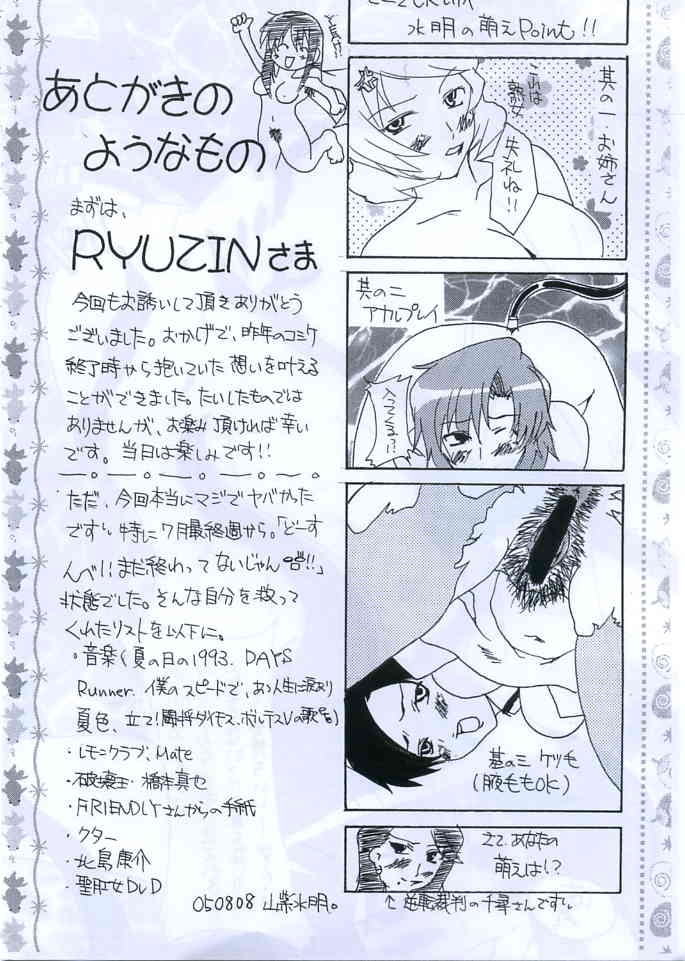 あとがきの
ようなもの
まずは、
RYUZINさま
今回もお誘いして頂きありがとう
ございました。おかげで、昨年のコミケ
終了時から抱いていた想いを叶える
ことができました。たいしたものでは
ありませんが、お楽み頂ければ幸い
です。当日は楽しみです!!
ただ、今回本当にマジでヤバかった
です。特に7月最終週から。「どーす
んべ!!まだ終わってないじゃん!!」
状態でした。そんな自分を救って
くれたリストを以下に。
・音楽(夏の日の1993. DAYS
Runner. 僕のスピードで、あゝ人生に涙あり
夏色、立て!闘将ダイモス、ボルテスVの歌 )
・レモンクラブ、Mate
・破壊王・橋本真也
・FRIENDLYさんからの手紙
・クター
・北島康介
・聖肛女DVD
050808 山紫水明。
水明の萌えPoint!!
其の一・お姉さん
これは
熟女
失礼ね!!
其の二
アカルプレイ
入ってくる!?
其の三 ケツ毛
(腋毛もOK)
さて、あなたの
萌えは!?
↑逆転裁判の千尋さんです。